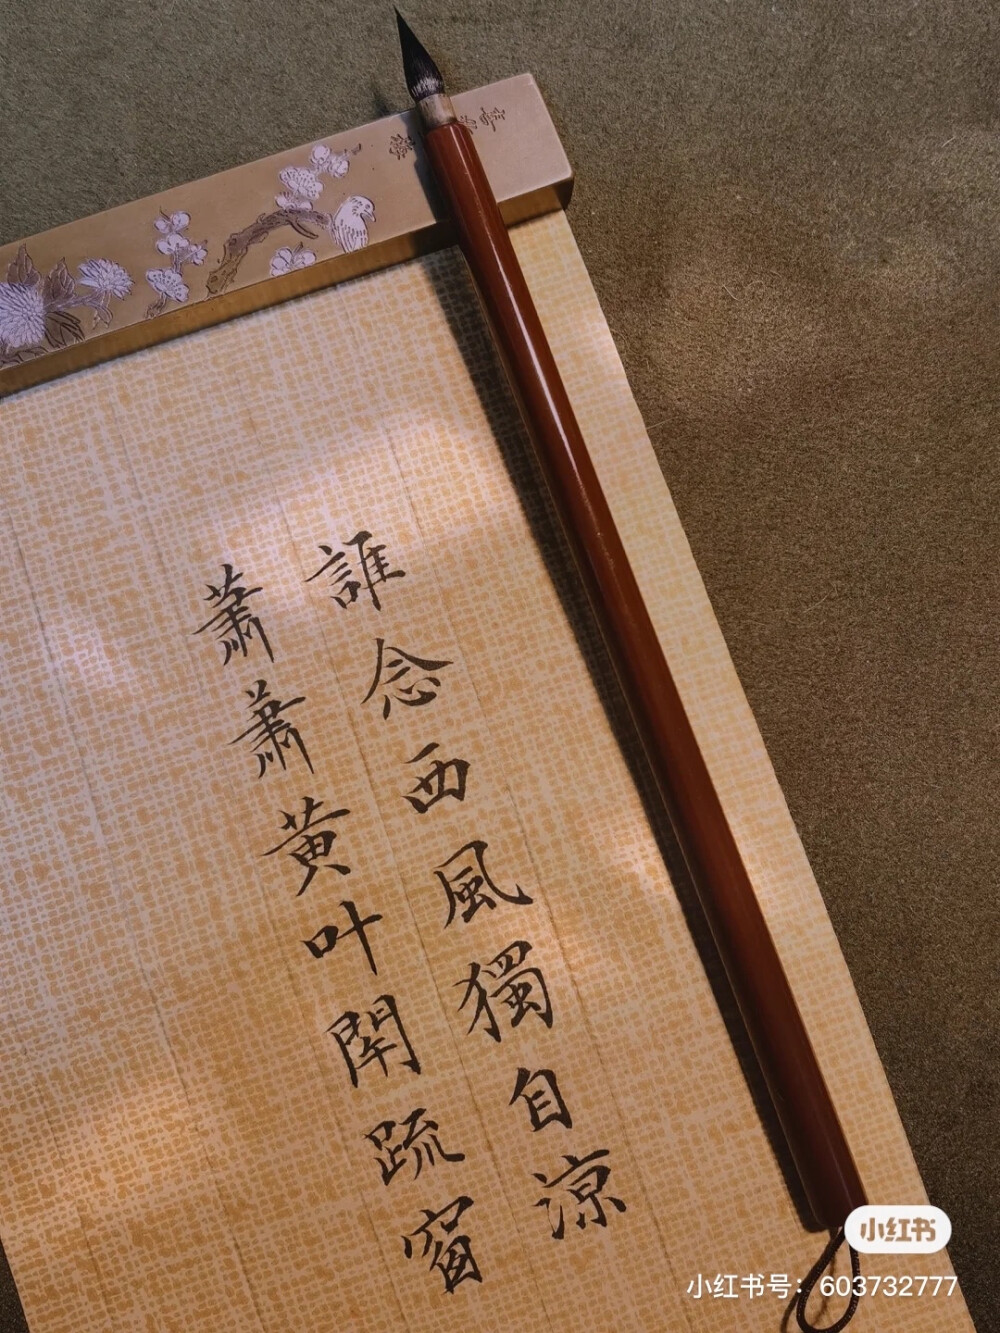 誰念西風獨自涼
蕭蕭黄叶閉疏窗
小红书
小红书号：603732777